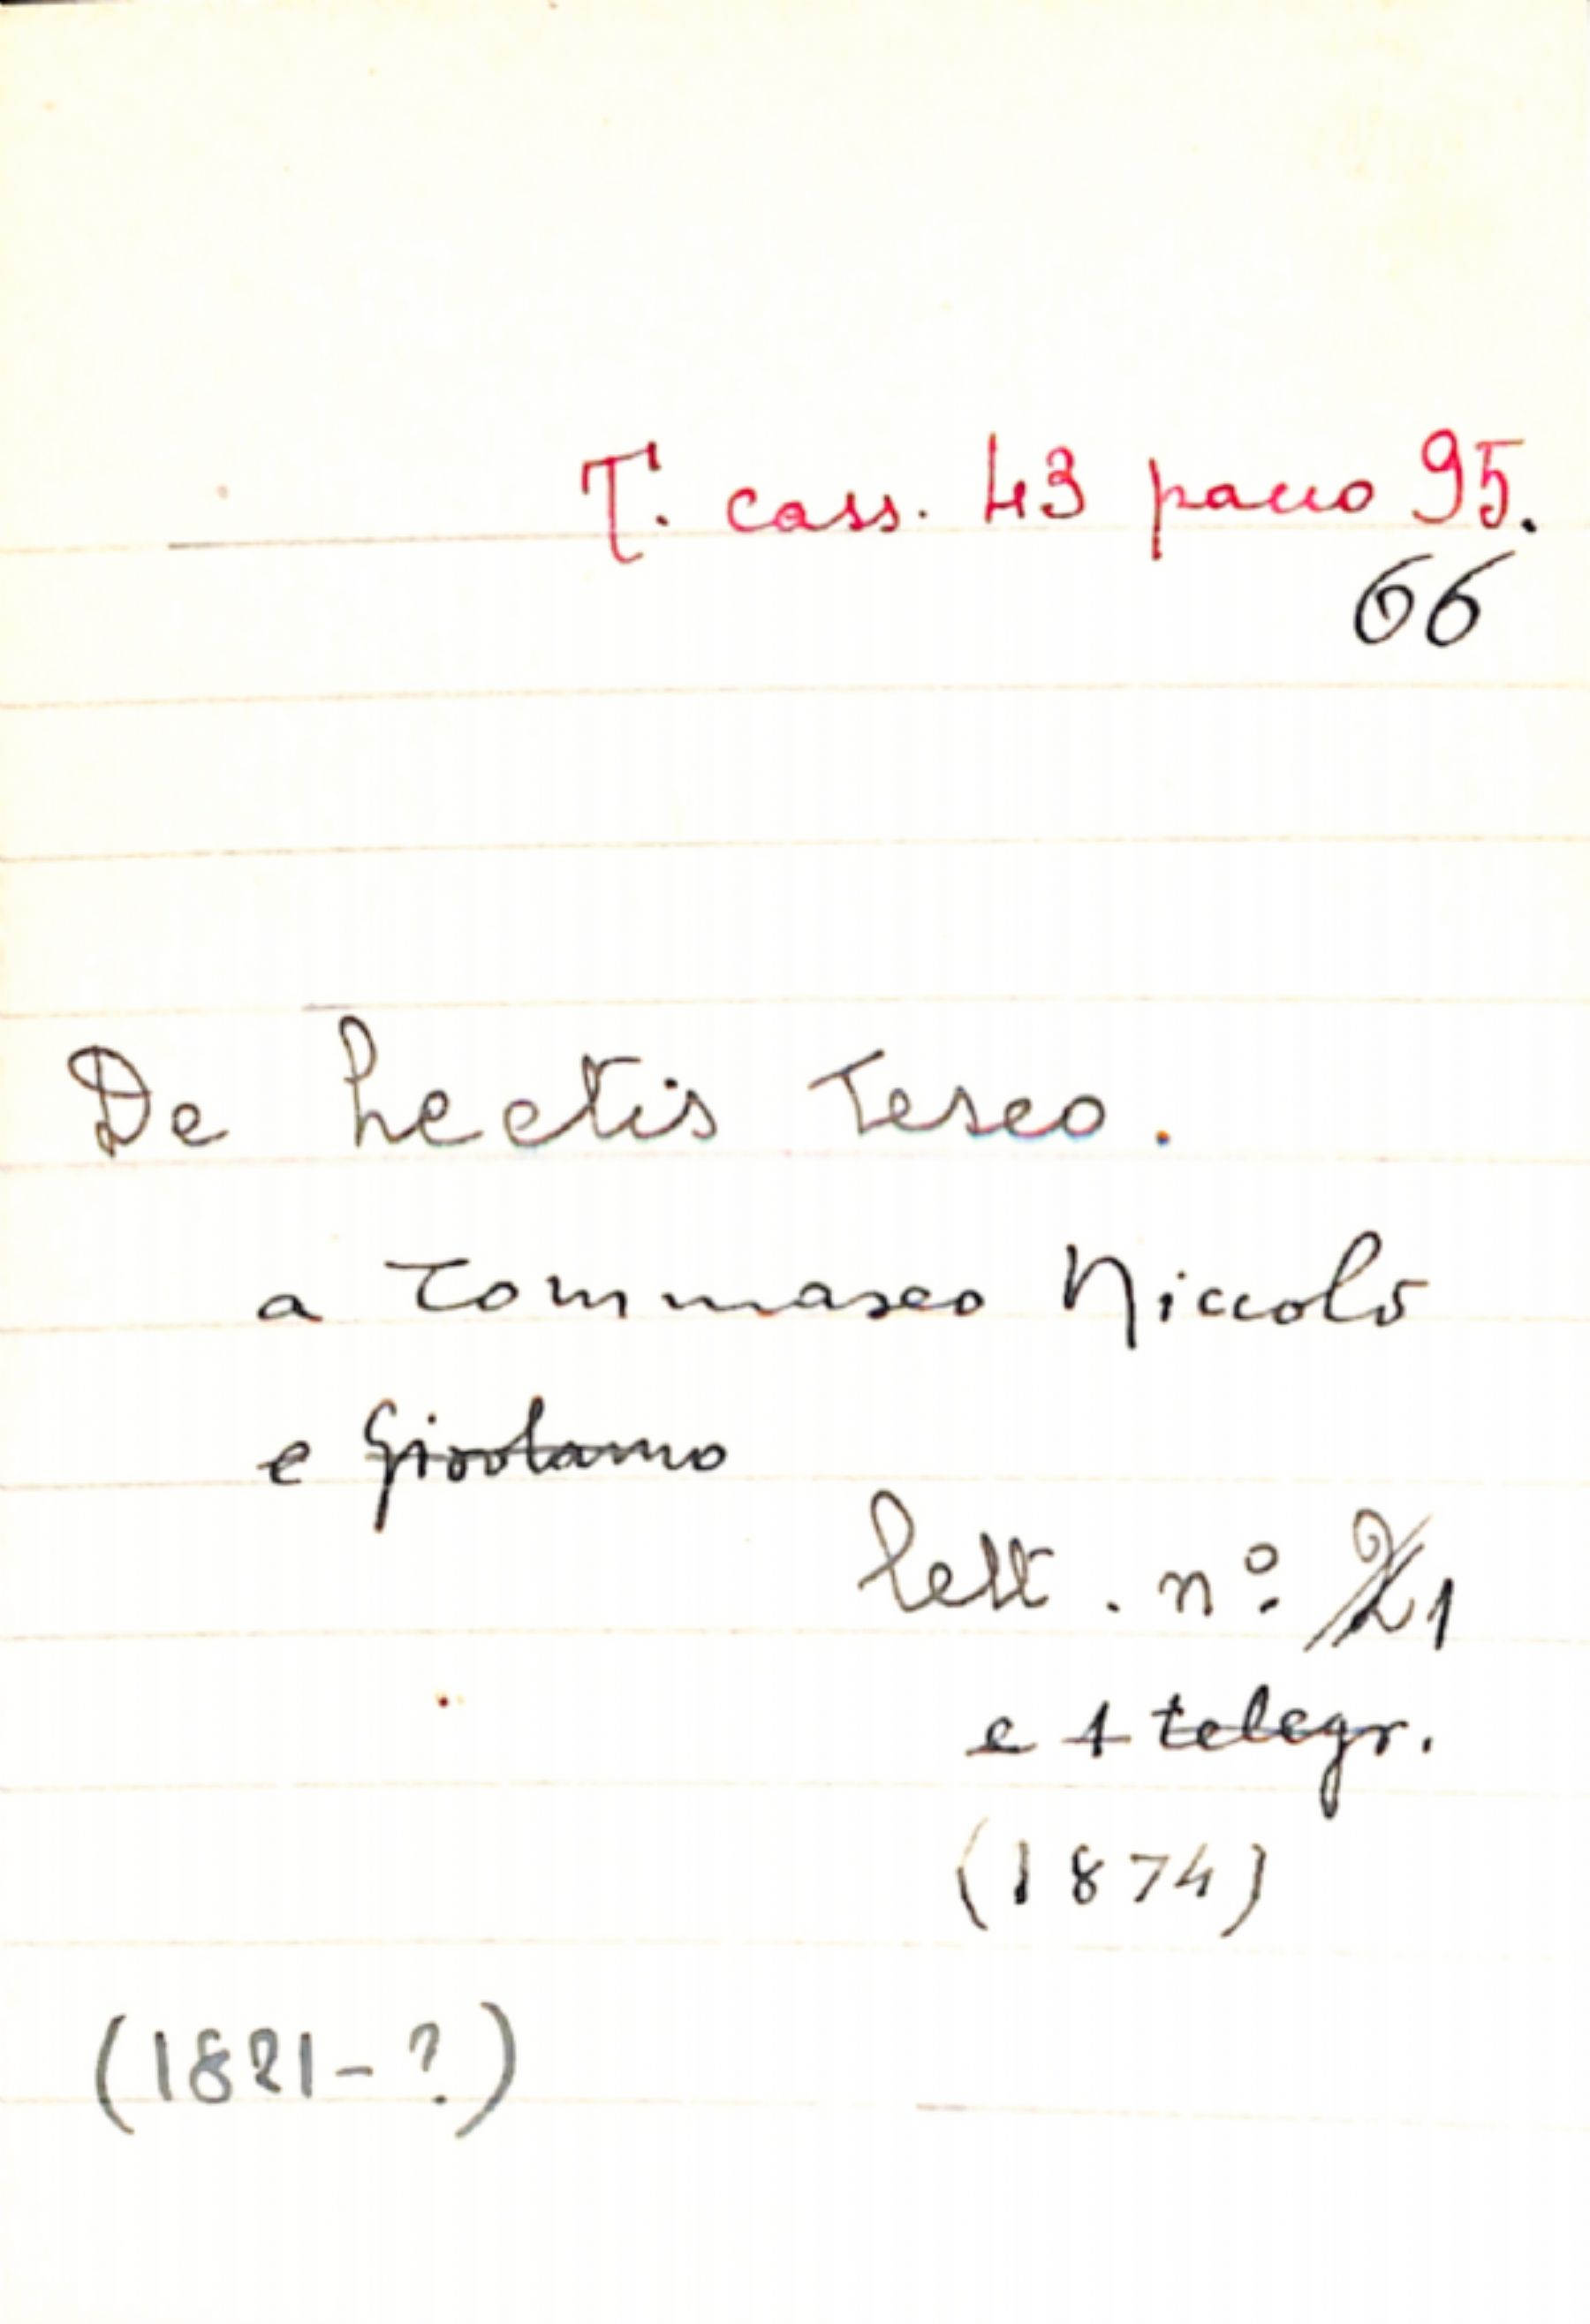 T. cass. 43 pacco 95.
66
De Lectis Teseo.
a Tommaseo Niccolò
e Girolamo
lett. n.º 2 1
e 1 telegr.
(1874)
(1821-?)